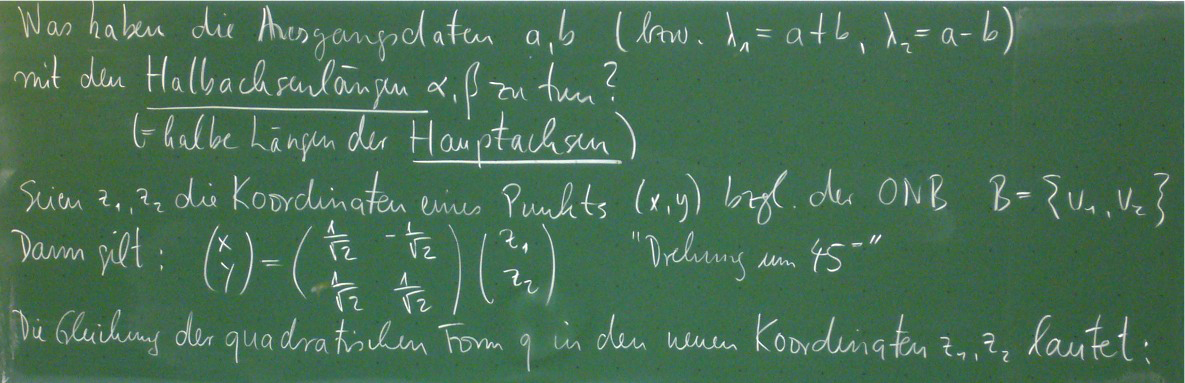 Was haben die Ausgangsdaten a,b (bzw. λ₁ = a+b, λ₂ = a-b)
mit den Halbachsenlängen α, β zu tun?
(= halbe Längen der Hauptachsen)
Seien z₁, z₂ die Koordinaten eines Punkts (x,y) bzgl. der ONB B = {v₁, v₂}
Dann gilt: (x y) = (1/√2 -1/√2 1/√2 1/√2) (z₁ z₂) "Drehung um 45°"
Die Gleichung der quadratischen Form q in den neuen Koordinaten z₁, z₂ lautet: